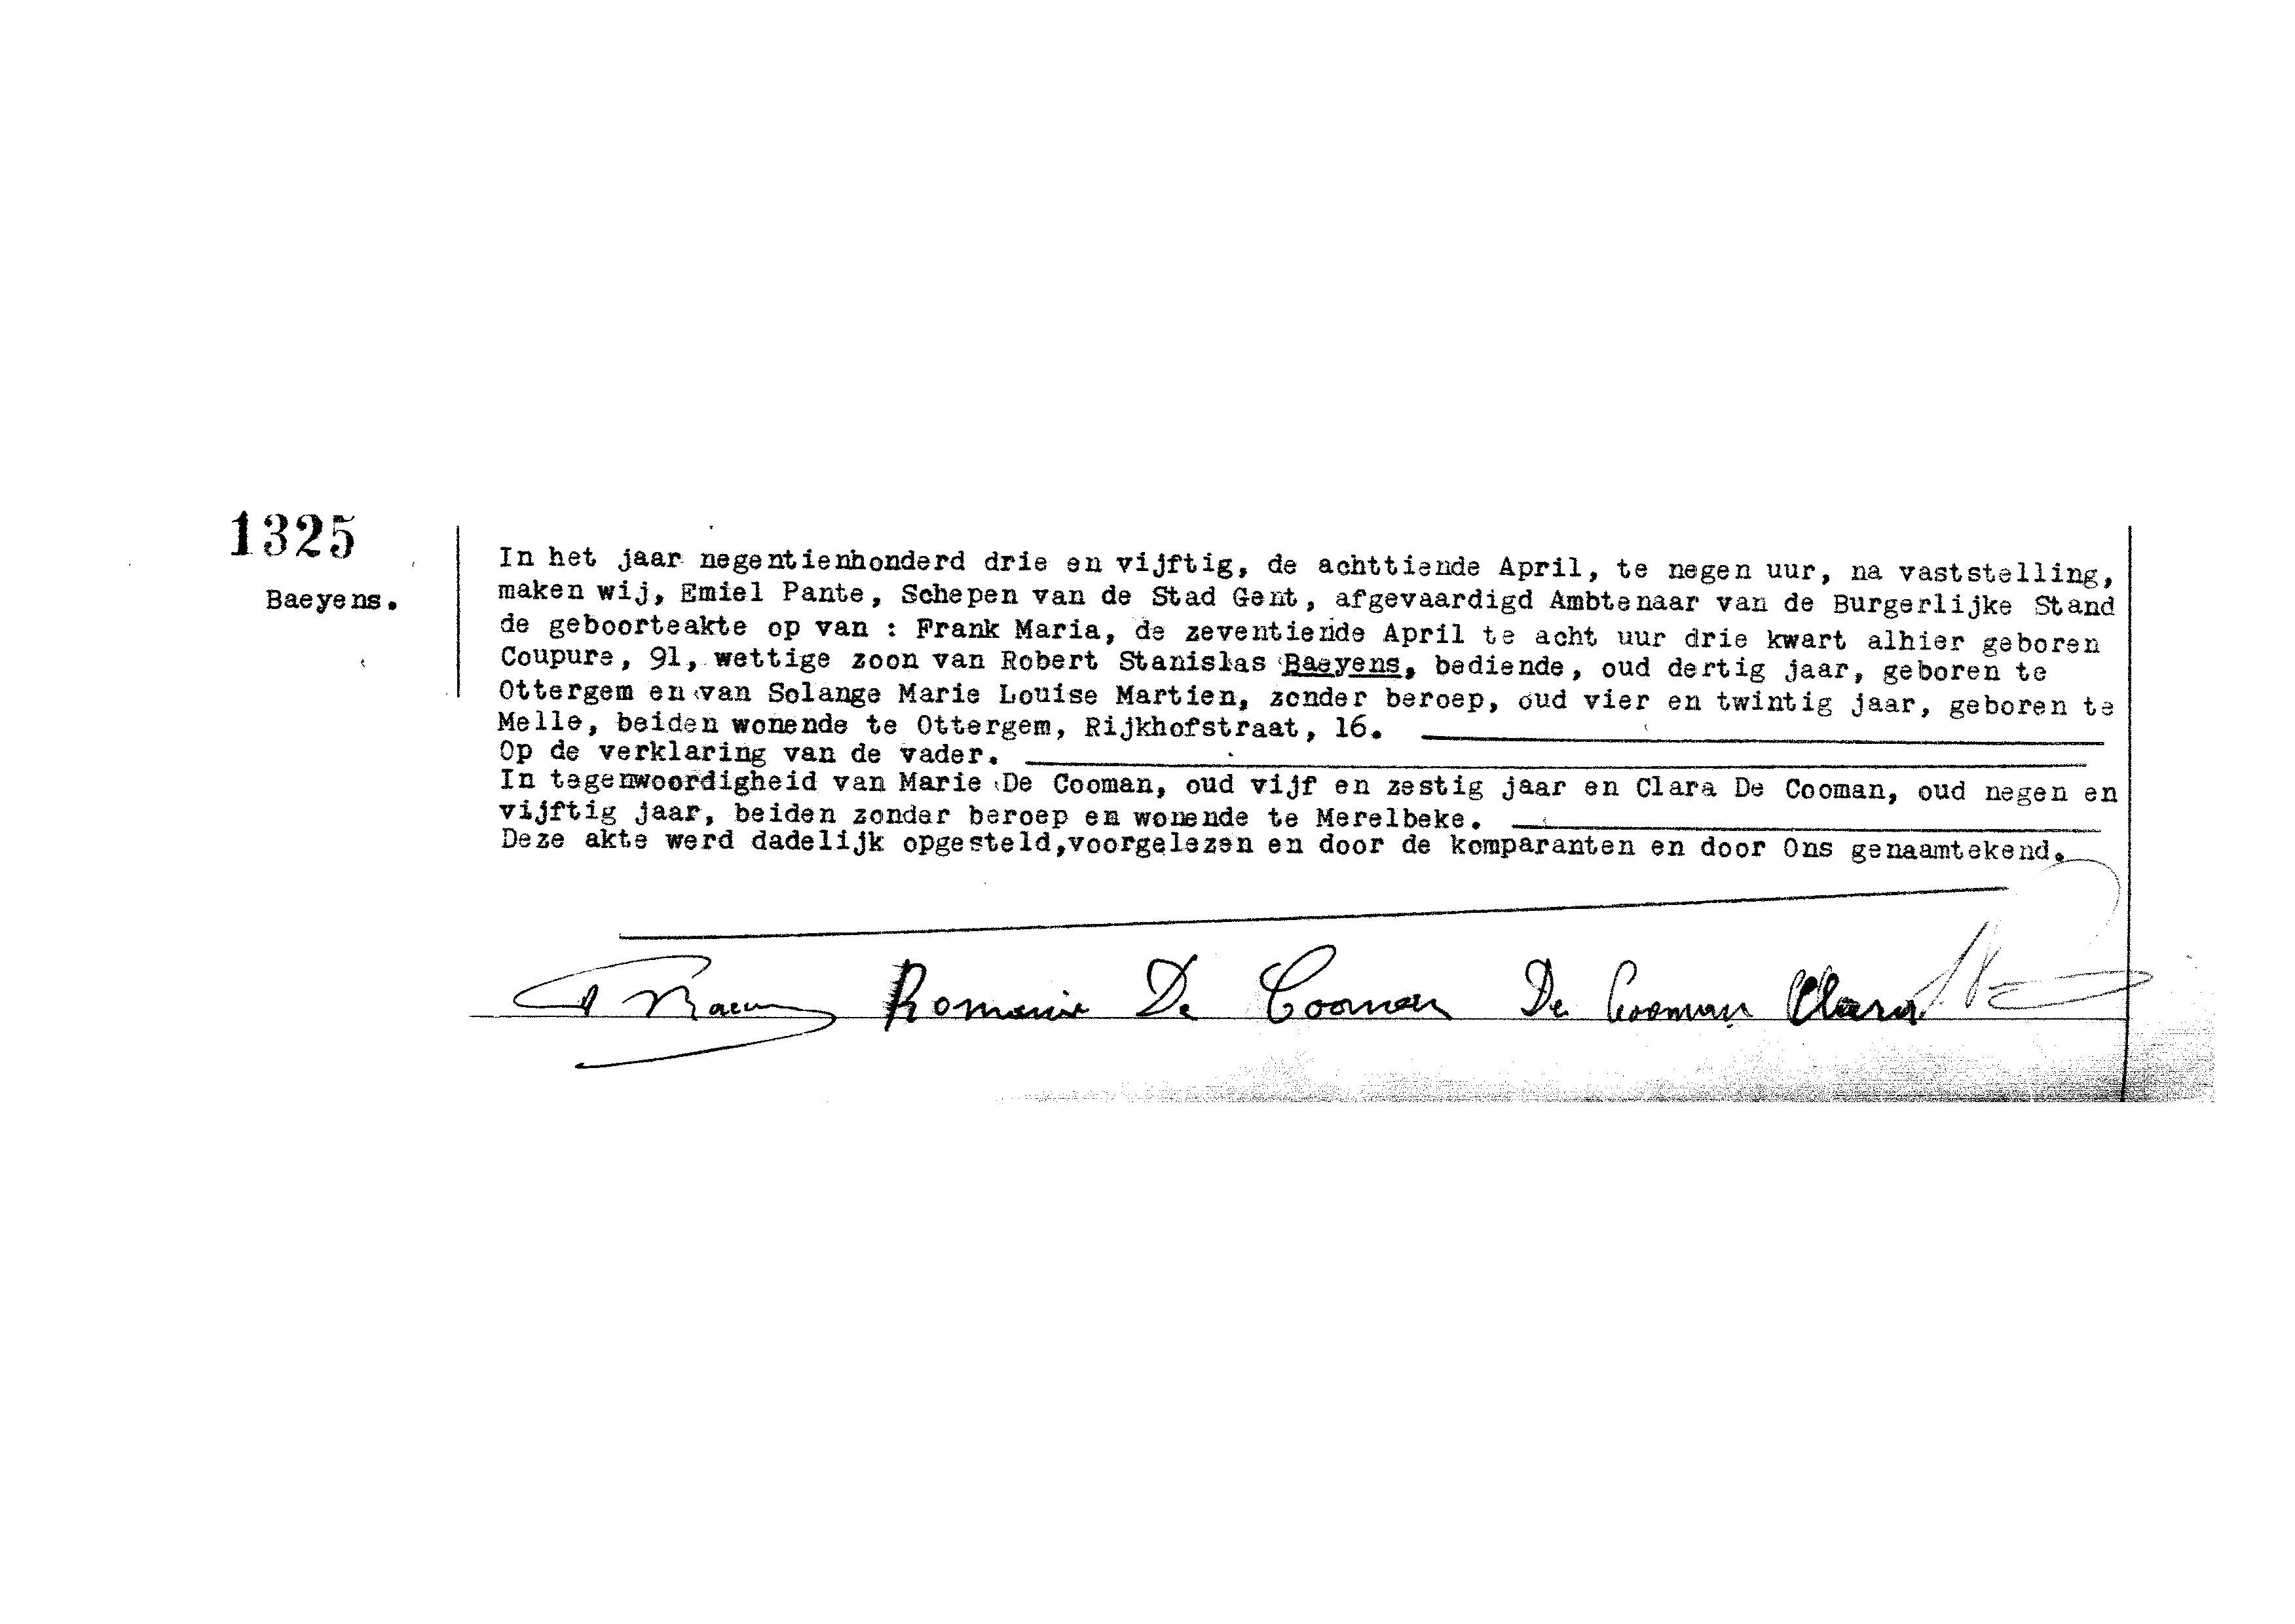 1325
Baeyens.
In het jaar negentienhonderd drie en vijftig, de achttiende April, te negen uur, na vaststelling,
maken wij, Emiel Pante, Schepen van de Stad Gent, afgevaardigd Ambtenaar van de Burgerlijke Stand
de geboorteakte op van : Frank Maria, de zeventiende April te acht uur drie kwart alhier geboren
Coupure, 91, wettige zoon van Robert Stanislas Baeyens, bediende, oud dertig jaar, geboren te
Ottergem en van Solange Marie Louise Martien, zonder beroep, oud vier en twintig jaar, geboren te
Melle, beiden wonende te Ottergem, Rijkhofstraat, 16.
Op de verklaring van de vader.
In tegenwoordigheid van Marie De Cooman, oud vijf en zestig jaar en Clara De Cooman, oud negen en
vijftig jaar, beiden zonder beroep en wonende te Merelbeke.
Deze akte werd dadelijk opgesteld,voorgelezen en door de komparanten en door Ons genaamtekend.
De Cooman De Cooman Clara